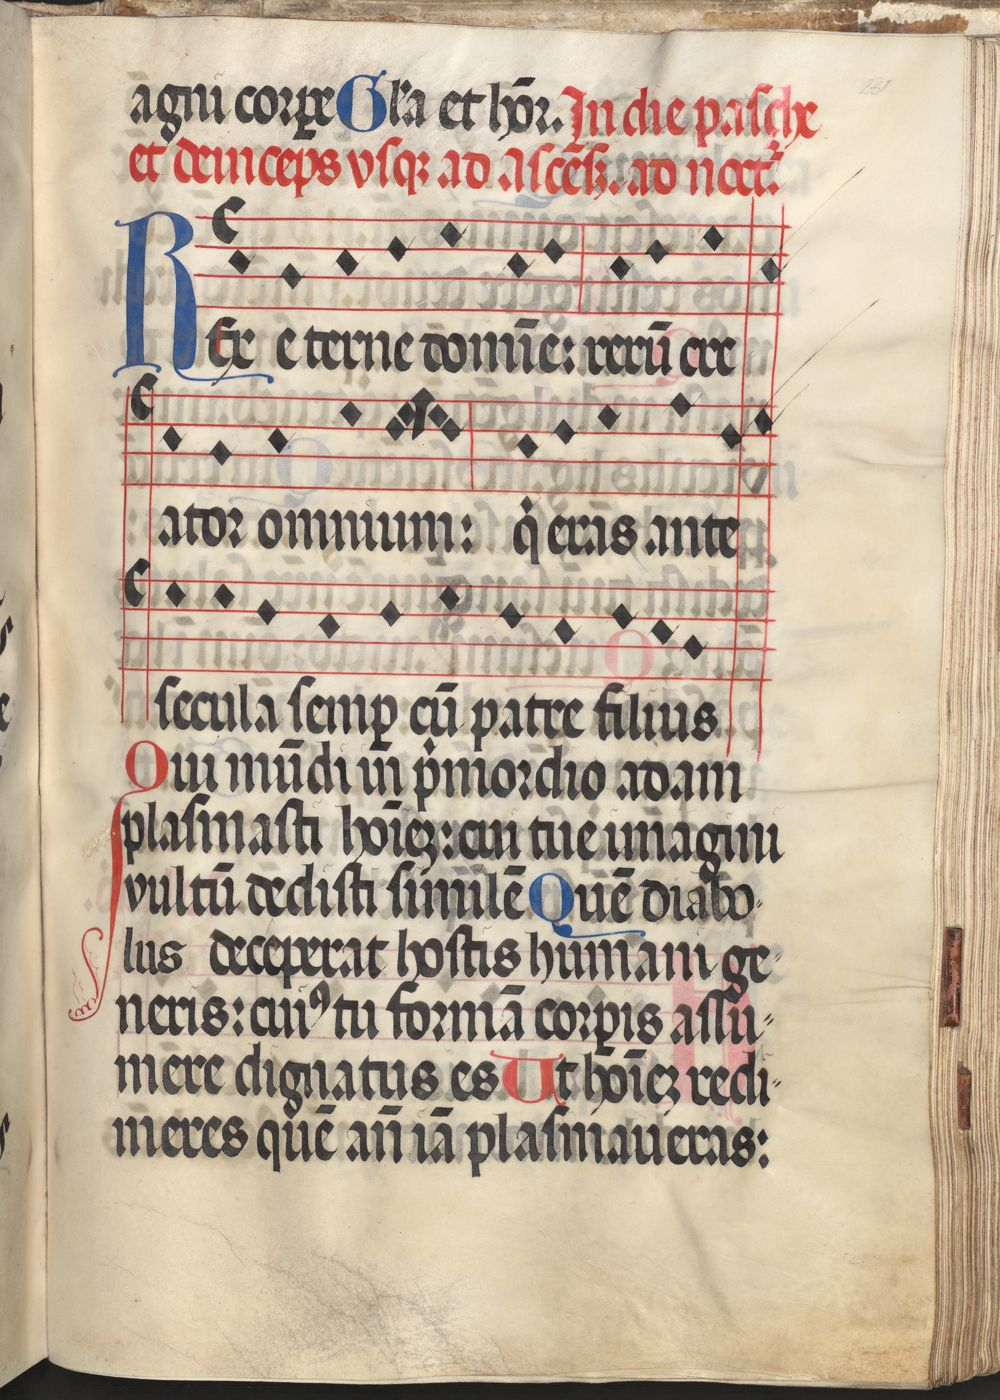 agni corꝑe Gl'a et hōr. In die pasche
et deinceps vsqꝫ ad Ascēsꝫ. ad noct.
REx e terne domīe: rerū cre
ator omnium: q̇ eras ante
secula semꝑ cū patre filius
Qui mūdi in pͥmordio adam
plasmasti hoīeꝫ: cui tue imagini
vultū dedisti similē Quē diabo-
lus deceperat hostis humani ge-
neris: cuiꝰ tu formā corꝑis assu-
mere dignatus es Ut hoīeꝫ redi-
meres quē an̄ iā plasmaueras: